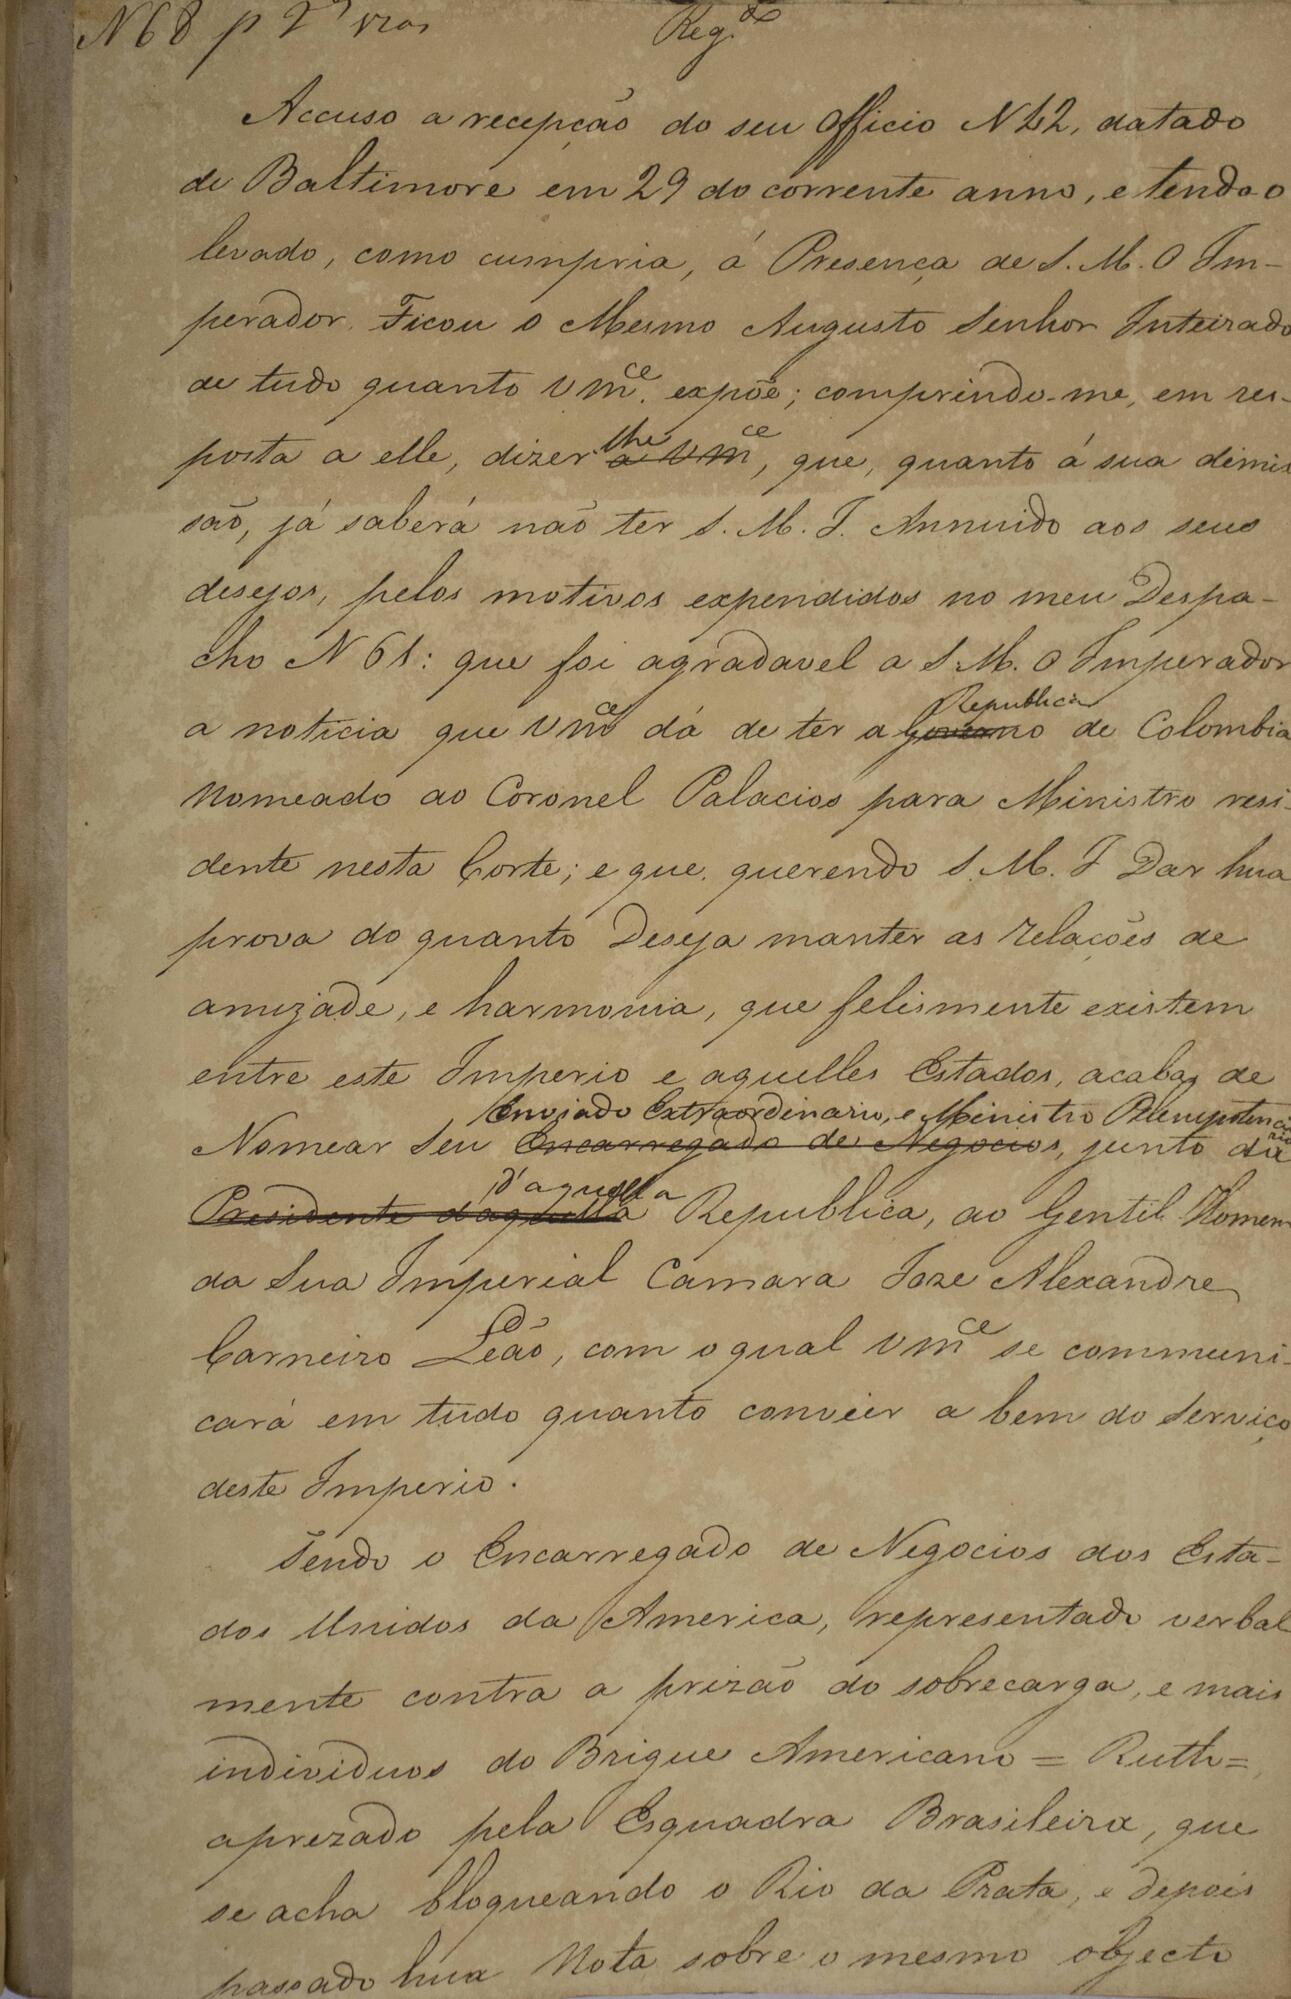 N 68 p 2ª vias Reg.do
Accuso a recepção do seu Officio N 42, datado
de Baltimore em 29 do corrente anno, e tendo-o
levado, como cumpria, á Presença de S. M. O Im-
perador, Ficou o Mesmo Augusto Senhor Inteirado
de tudo quanto Vmce. expõe; comprindo-me, em res-
posta a elle, dizer-lhe a Vmce, que, quanto á sua demis
são, já saberá não ter S. M. I. Annuido aos seus
desejos, pelos motivos expendidos no meu Despa-
cho N 61: que foi agradavel a S. M. O Imperador
Republica
a noticia que Vmce dá de ter a Governo de Colombia
Nomeado ao Coronel Palacios para Ministro resi-
dente nesta Corte; e que, querendo S. M. I Dar hua
prova do quanto Deseja manter as relações de
amizade, e harmonia, que felismente existem
entre este Imperio e aquelles Estados, acaba de
Enviado Extraordinario, e Ministro Plenipotenciario
Nomear Seu Encarregado de Negocios, junto da
d'aquella
Presidente daquella Republica, ao Gentil Homem
da Sua Imperial Camara Joze Alexandre
Carneiro Leão, com o qual Vmce se communi-
cará em tudo quanto convier a bem do Serviço
deste Imperio.
Tendo o Encarregado de Negocios dos Esta-
dos Unidos da America, representado verbal
mente contra a prizão do sobrecarga, e mais
individuos do Brigue Americano = Ruth =,
aprezado pela Esquadra Brasileira, que
se acha bloqueando o Rio da Prata, e depois
passado hua Nota sobre o mesmo objecto